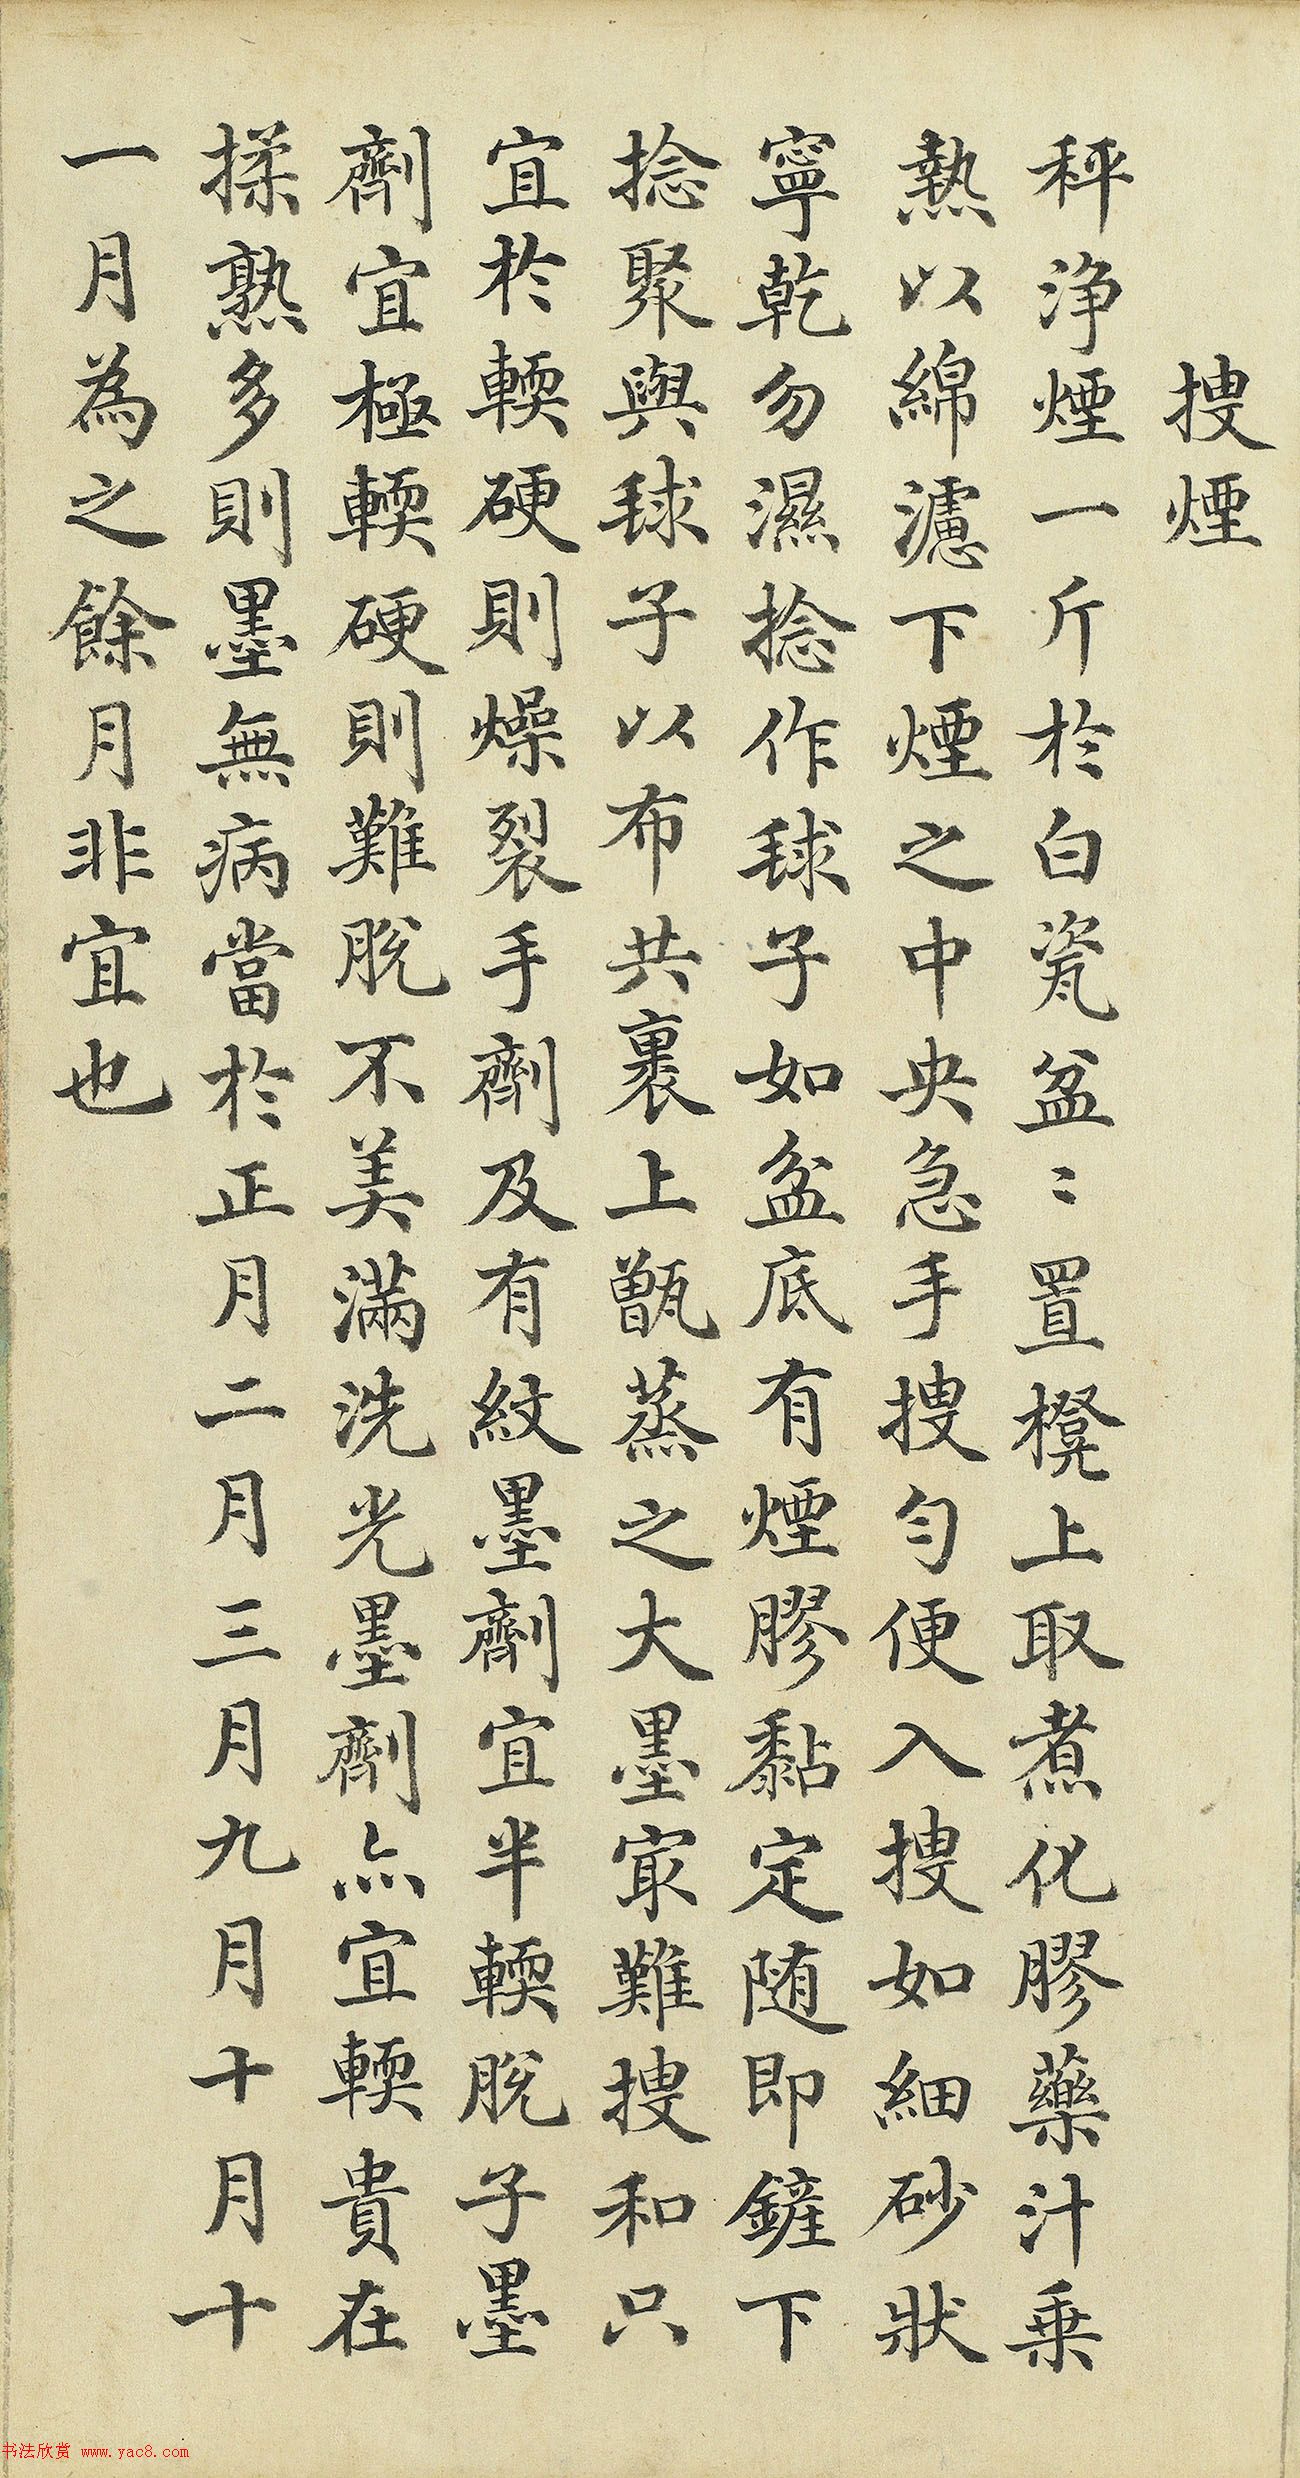 搜煙
秤淨煙一斤於白瓷盆〻置櫈上取煮化膠藥汁乗
熱以綿濾下煙之中央急手搜匀便入搜如細砂狀
寧乾勿濕捻作毬子如盆底有煙膠黏定随即鏟下
捻聚與毬子以布共裹上甑蒸之大墨冣難搜和只
宜於輭硬則燥裂手劑及有紋墨劑宜半輭脫子墨
劑宜極輭硬則難脫不美滿洗光墨劑亦宜輭貴在
揉熟多則墨無病當於正月二月三月九月十月十
一月為之餘月非宜也
书法欣赏 www.yac8.com